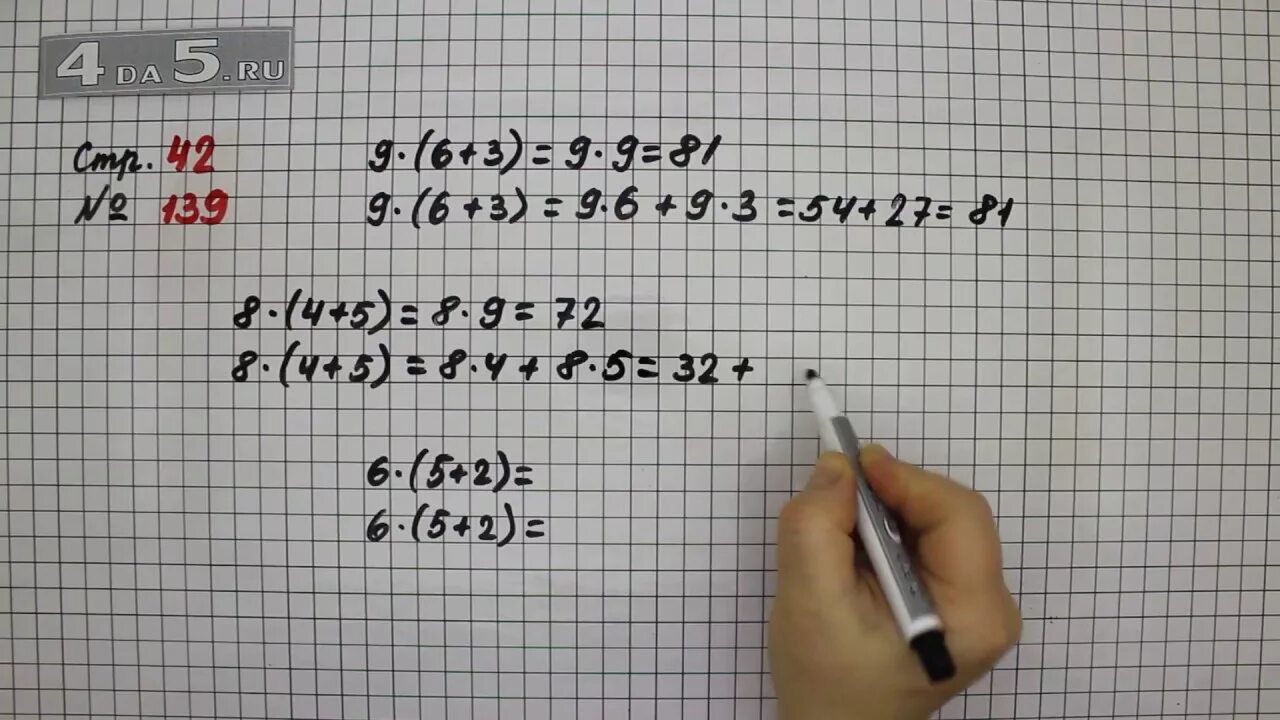 4 DA 5.RU
Стр. 42
№ 139
9·(6+3)=9·9=81
9·(6+3)=9·6+9·3=54+27=81
8·(4+5)=8·9=72
8·(4+5)=8·4+8·5=32+
6·(5+2)=
6·(5+2)=